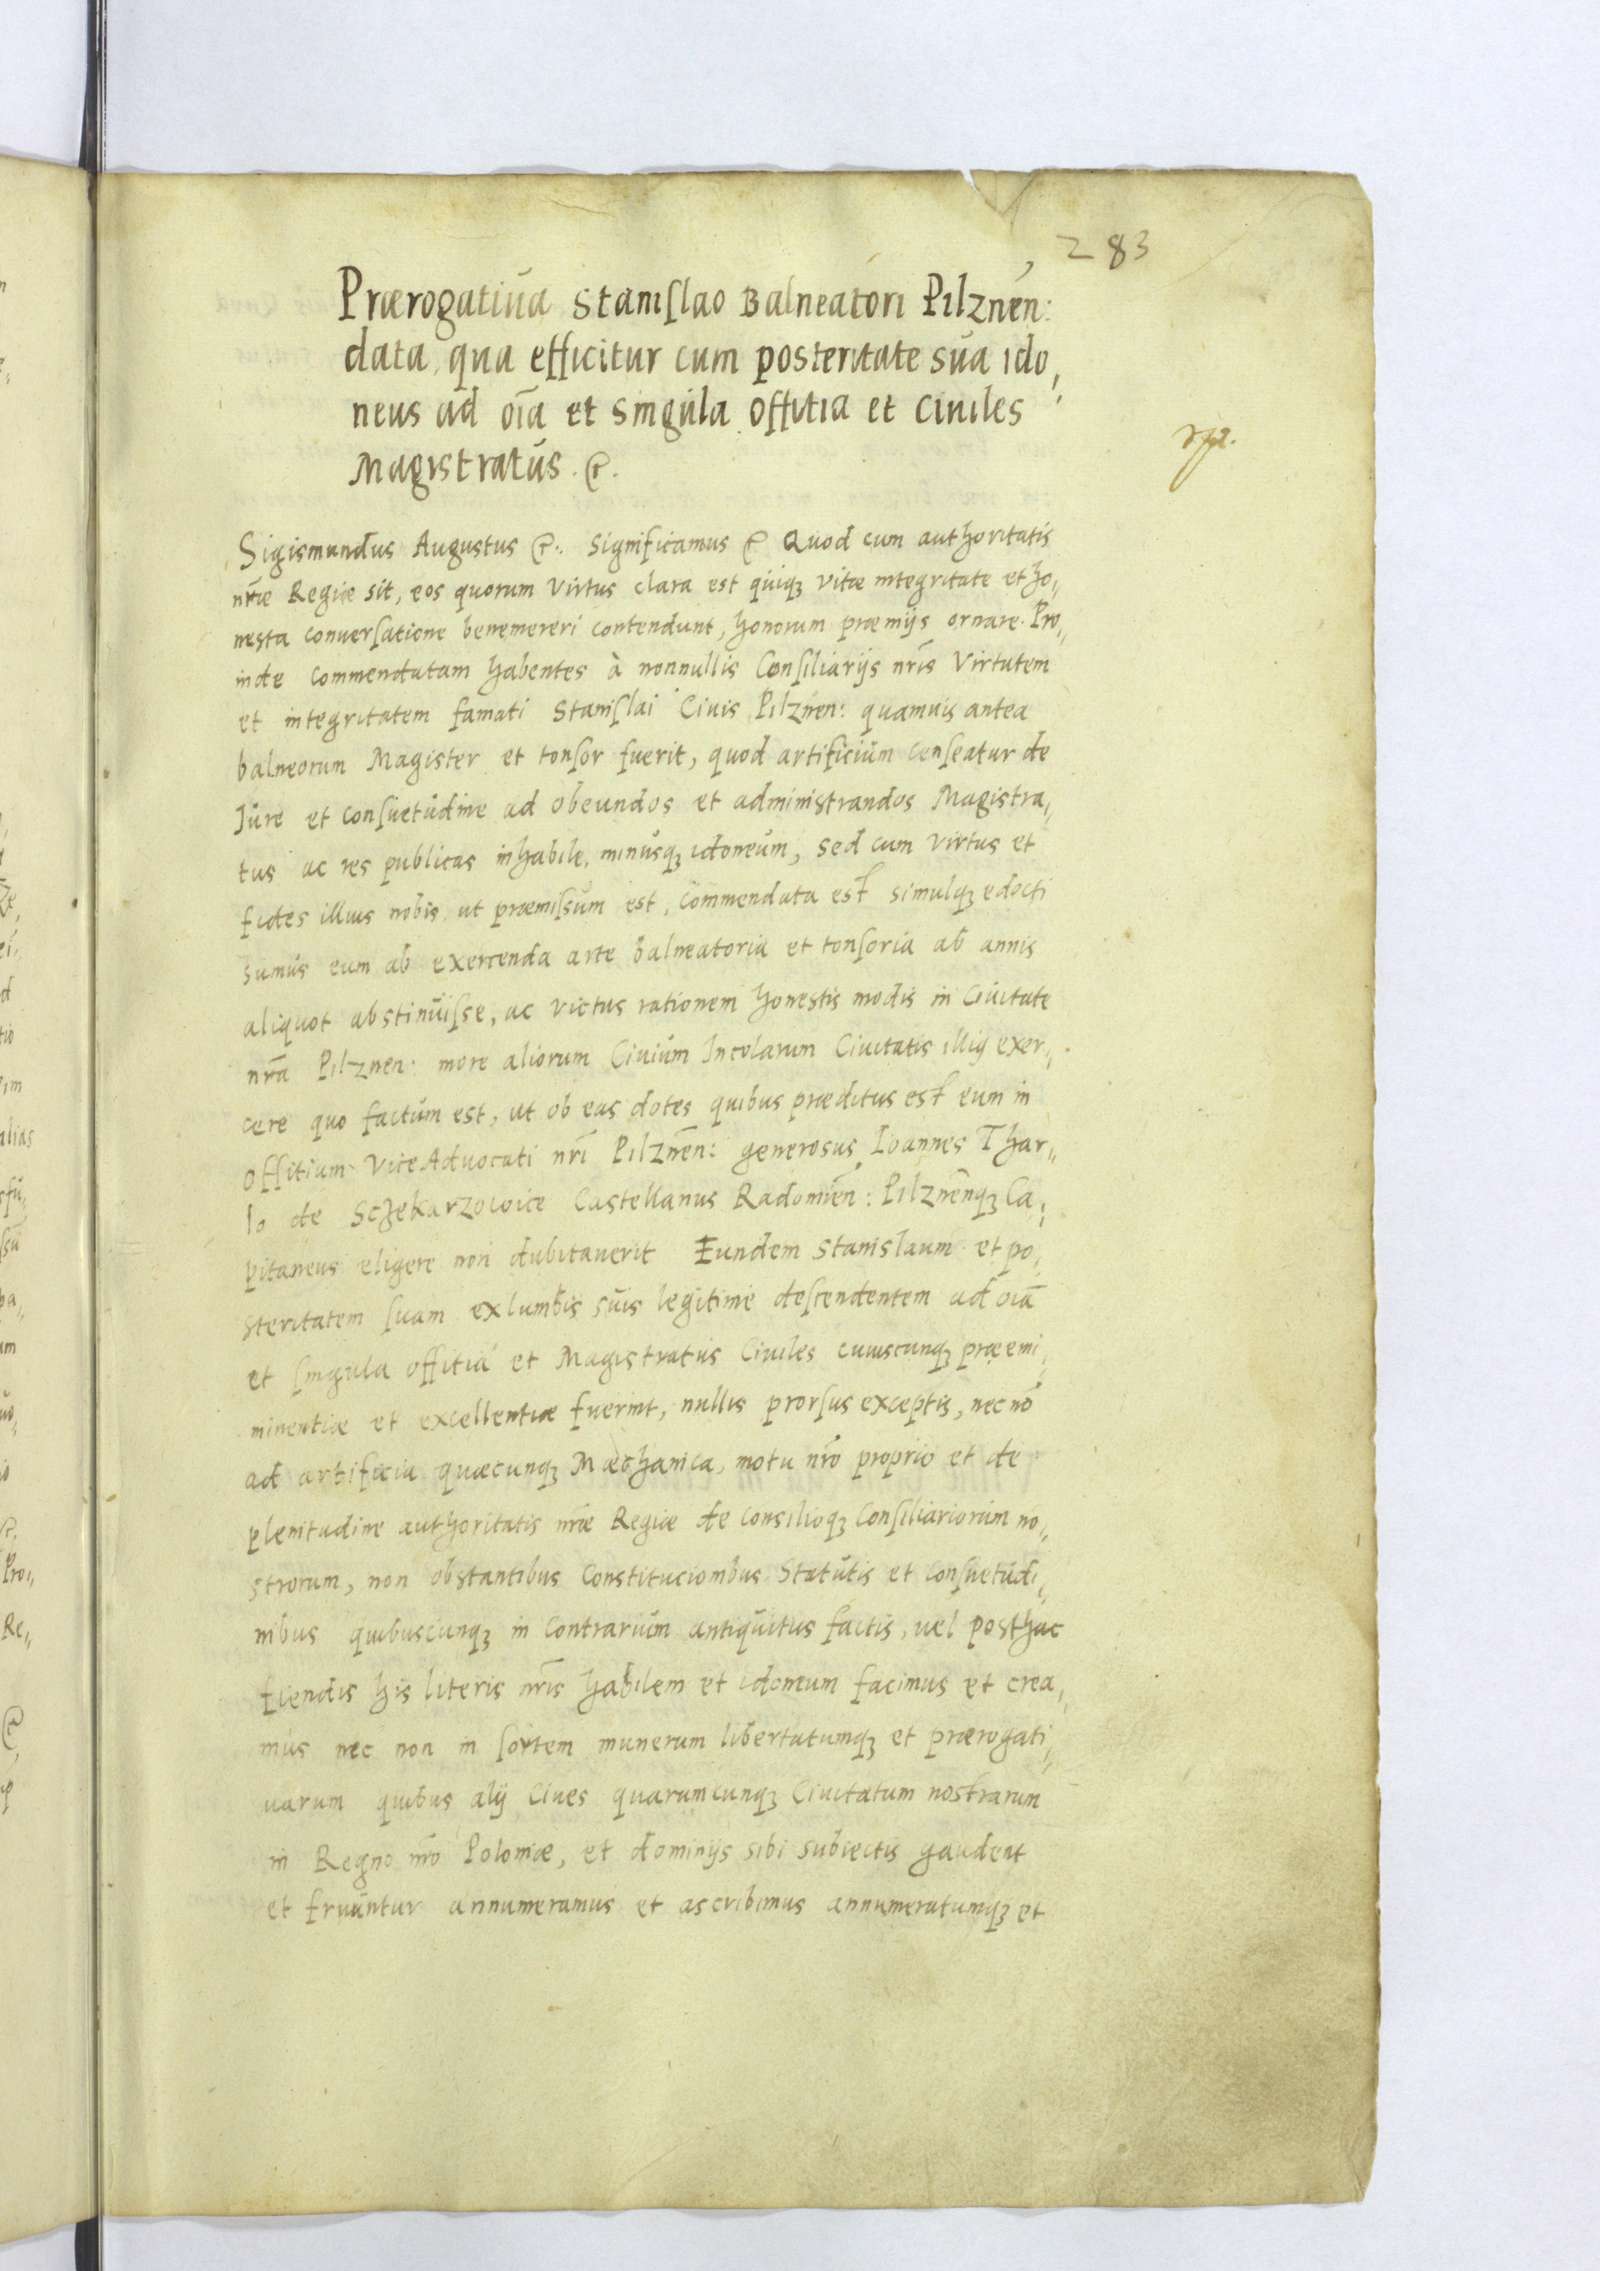 283
Prærogatiua Stanislao Balneatori Pilznen:
data, qua efficitur cum posteritate sua ido,
neus ad oīa et singula offitia et Ciuiles
Magistratus. &.
Sigismundus Augustus &. Significamus & Quod cum authoritatis
nr̄æ Regiæ sit, eos quorum virtus clara est quiq; vitæ integritate et ho,
nesta conuersatione benemereri contendunt, honorum præmijs ornare. Pro,
inde commendatam habentes à nonnullis Consiliarijs nr̄is Virtutem
et integritatem famati Stanislai Ciuis Pilznen: quamuis antea
balneorum Magister et tonsor fuerit, quod artificium censeatur de
Iure et consuetudine ad obeundos et administrandos Magistra,
tus ac res publicas inhabile, minusq; idoneum, sed cum virtus et
fides illius nobis ut præmissum est, commendata est simulq; edocti
sumus eum ab exercenda arte balneatoria et tonsoria ab annis
aliquot abstinuisse, ac victus rationem honestis modis in Ciuitate
nr̄a Pilznen: more aliorum Ciuium Incolarum Ciuitatis illiꝰ exer,
cere quo factum est, ut ob eas dotes quibus præditus est eum in
offitium ViceAduocati nr̄i Pilznen: generosus Ioannes Thar,
lo de Sczekarzowice Castellanus Radomien: Pilznenq; Ca,
pitaneus eligere non dubitauerit Eundem Stanislaum et po,
steritatem suam exlumbis suis legitime descendentem ad oīa
et singula offitia et Magistratus Ciuiles cuiuscunq; præemi,
minentiæ et excellentiæ fuerint, nullis prorsus exceptis, nec nō
ad artificia quæcunq; Mæchanica, motu nr̄o proprio et de
plenitudine authoritatis nr̄æ Regiæ de consilioq; Consiliariorum no,
strorum, non obstantibus Constitucionibus Statutis et consuetudi,
nibus quibuscunq; in contrarium antiquitus factis, uel posthac
fiendis his literis nr̄is habilem et idoneum facimus et crea,
mus nec non in sortem munerum libertatumq; et prærogati,
uarum quibus alij Ciues quarumcunq; Ciuitatum nostrarum
in Regno nr̄o Poloniæ, et dominijs sibi subiectis gaudent
et fruuntur annumeramus et ascribimus annumeratumq; et